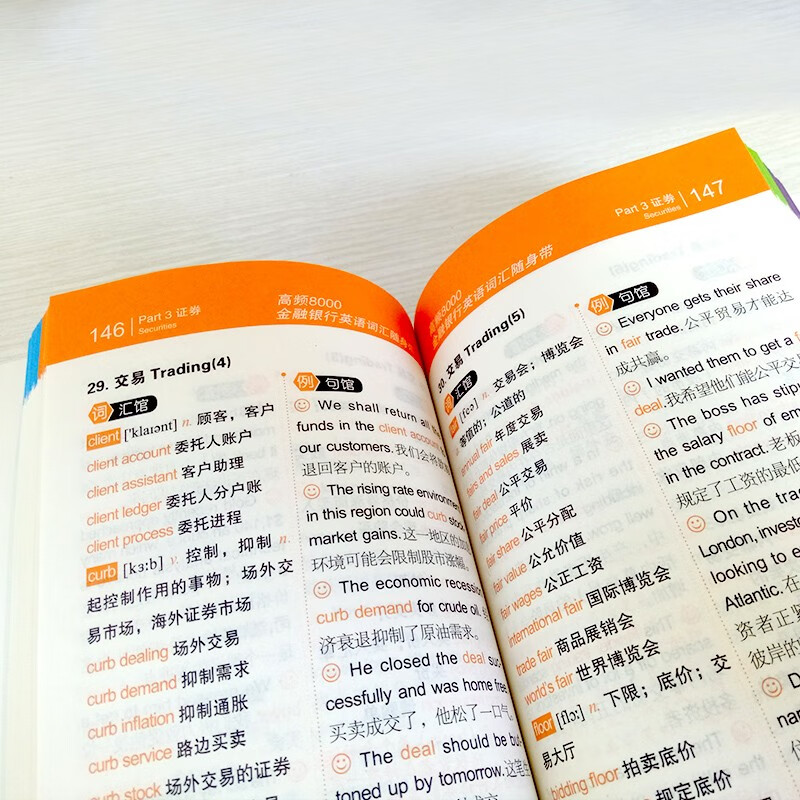 146 Part 3 证券
Securities
高频8000
金融银行英语词汇随身
29. 交易 Trading(4)
词 汇馆
client ['klaɪənt] n. 顾客，客户
client account 委托人账户
client assistant 客户助理
client ledger 委托人分户账
client process 委托进程
curb [kɜ:b] v. 控制，抑制 n.
起控制作用的事物；场外交
易市场，海外证券市场
curb dealing 场外交易
curb demand 抑制需求
curb inflation 抑制通胀
curb service 路边买卖
curb stock 场外交易的证券
例 句馆
We shall return all the
funds in the client account
our customers.我们会将
退回客户的账户。
The rising rate environment
in this region could curb stock
market gains.这一地区的
环境可能会限制股市涨幅。
The economic recession
curb demand for crude oil.
济衰退抑制了原油需求。
He closed the deal suc-
cessfully and was home free.
买卖成交了，他松了一口气
The deal should be but-
toned up by tomorrow.这笔
Part 3 证券 147
Securities
高频8000
金融银行英语词汇随身带
30. 交易 Trading(5)
词 汇馆
n. 交易会；博览会
等值的；公道的
annual fair 年度交易
fairs and sales 展卖
fair deal 公平交易
fair price 平价
fair share 公平分配
fair value 公允价值
fair wages 公正工资
international fair 国际博览会
trade fair 商品展销会
world's fair 世界博览会
floor [flɔ:] n. 下限；底价；交
易大厅
bidding floor 拍卖底价
规定底价
例 句馆
Everyone gets their share
in fair trade.公平贸易才能达
成共赢。
I wanted them to get a
deal.我希望他们能公平交
The boss has stip
the salary floor of em
in the contract.老板
规定了工资的最低
On the tra
London, invest
looking to e
Atlantic.在
资者正
彼岸的